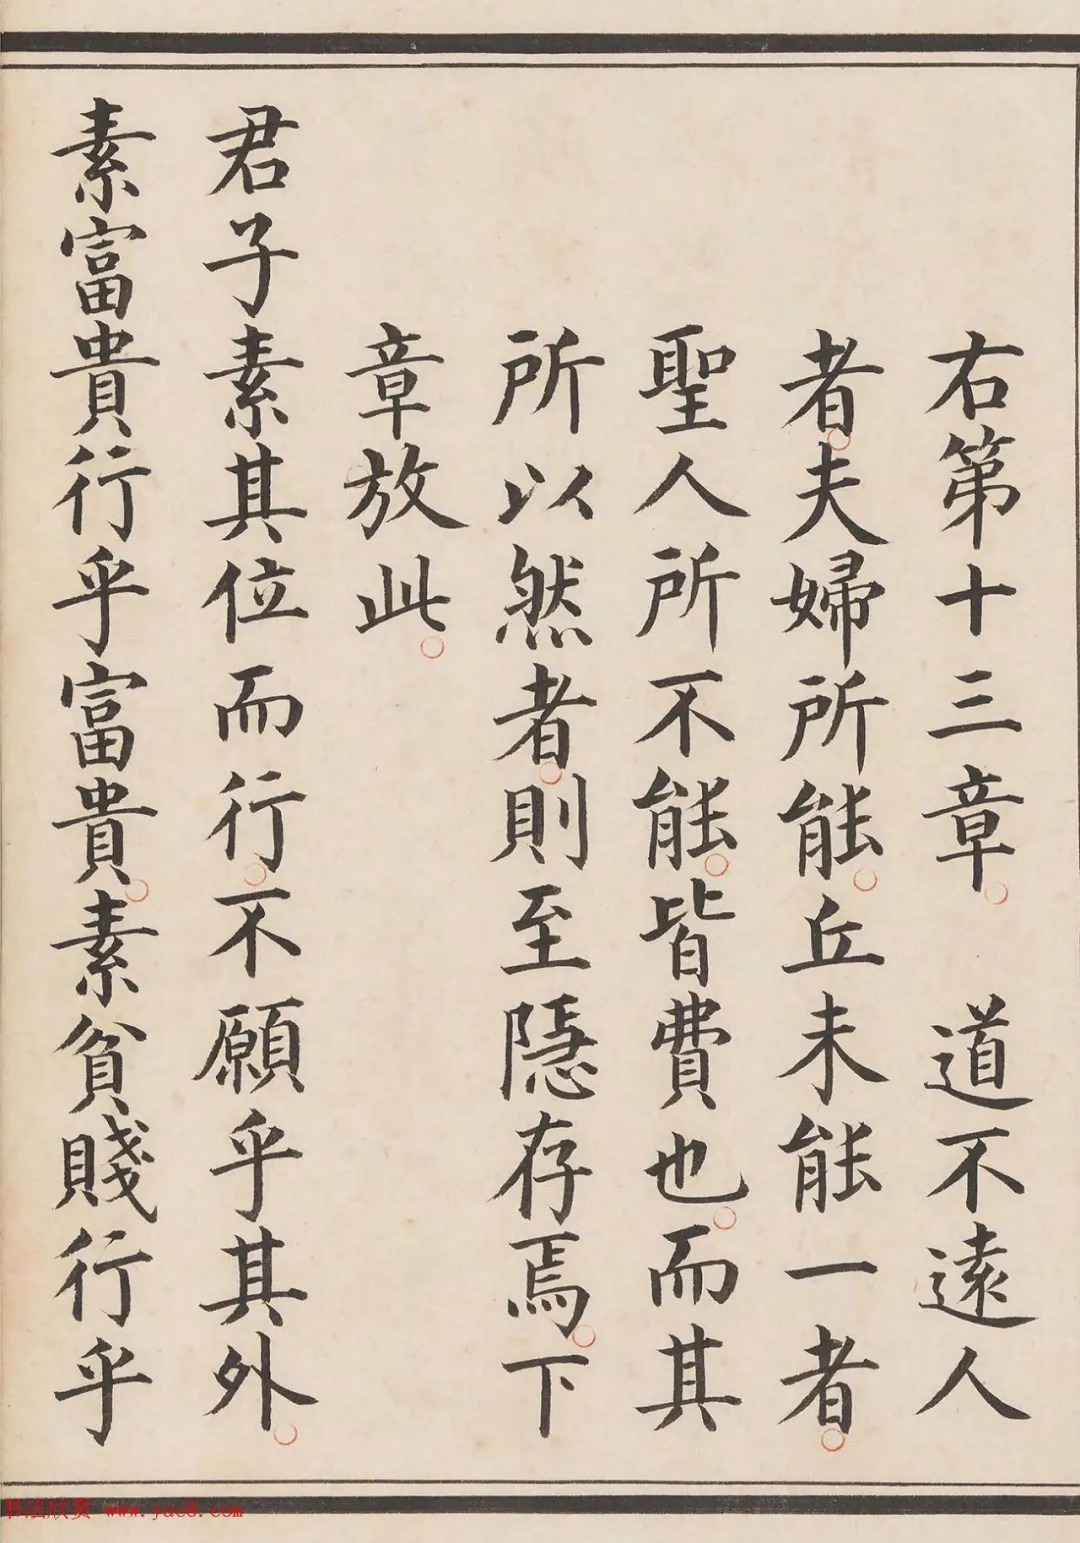 右第十三章。　道不遠人
者。夫婦所能。丘未能一者。
聖人所不能。皆費也。而其
所以然者。則至隱存焉。下
章放此。
君子素其位而行。不願乎其外。
素富貴行乎富貴。素貧賤行乎
书法欣赏 www.yac8.com